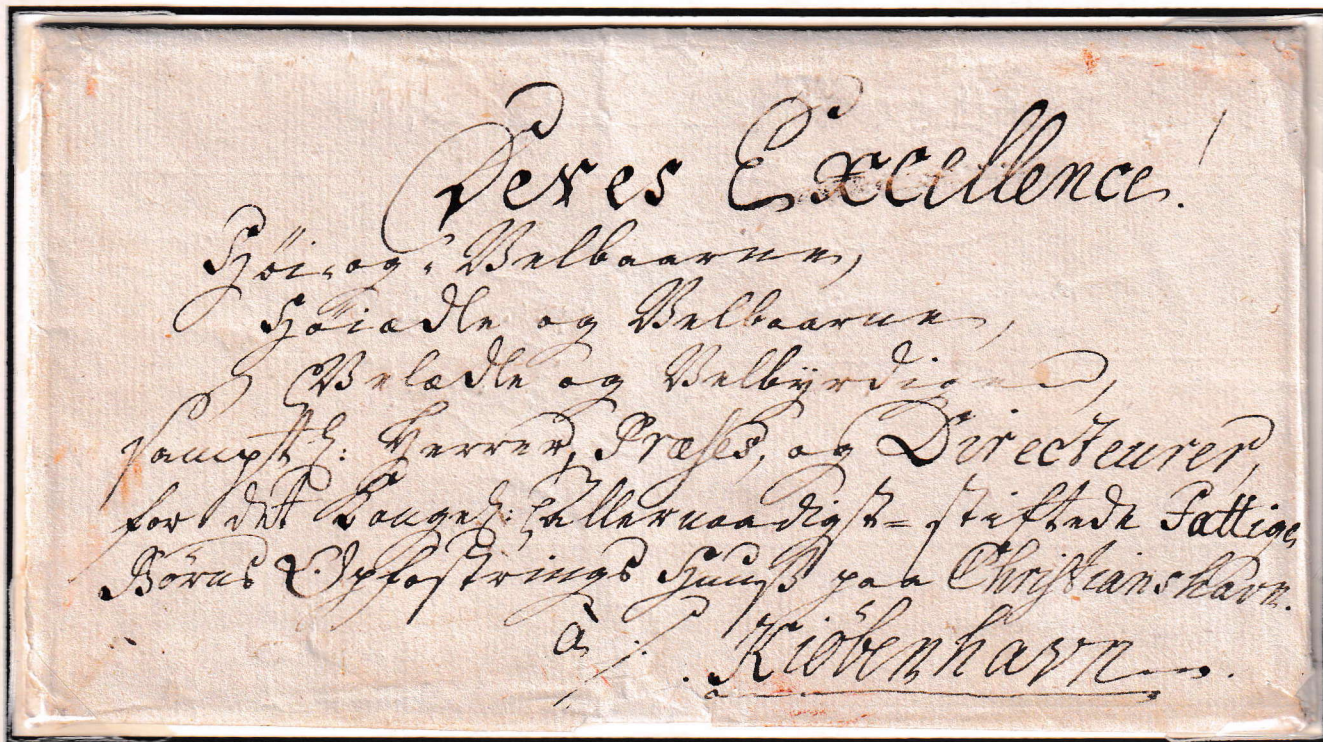 Deres Excellence!
Høi- og Velbaarne,
Høiædle og Velbaarne,
Velædle og Velbÿrdige,
samptl: Herrer, Præses, og Directeurer,
for det Kongel: Allernaadigst= stiftede Fattige
Børns Opfostrings Huuß paa Christianshavn.
a /. Kiøbenhavn.